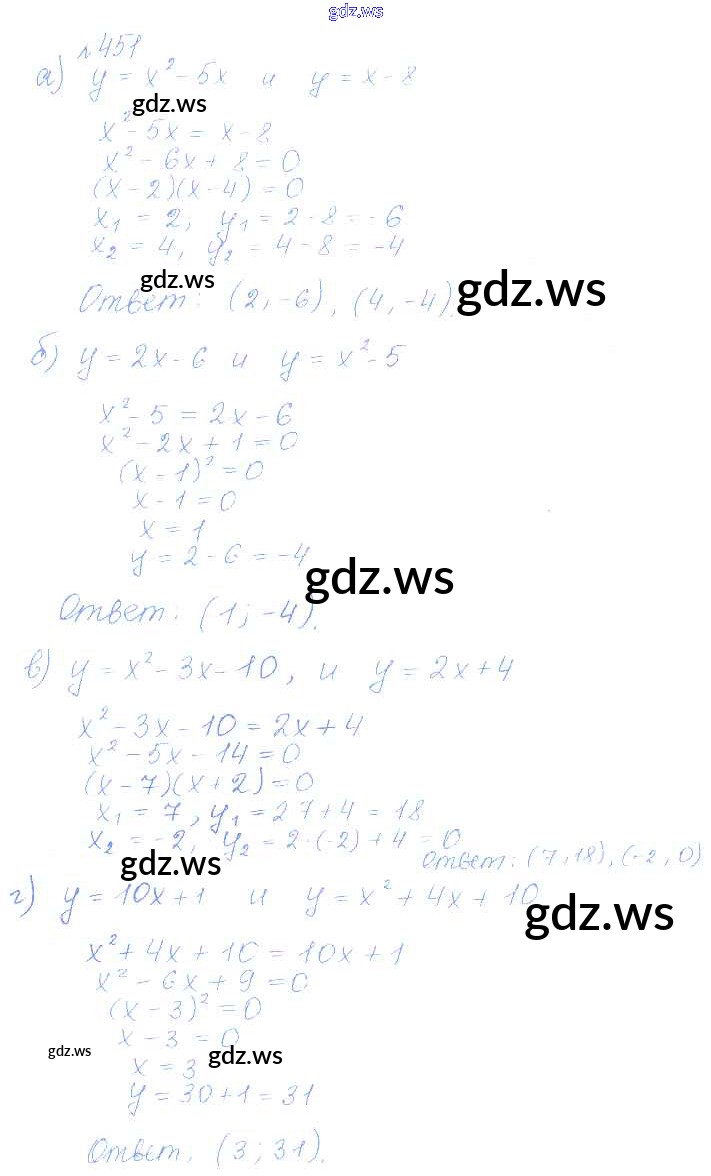 gdz.ws
№451
а) y = x² - 5x и y = x - 8
gdz.ws
x² - 5x = x - 8
x² - 6x + 8 = 0
(x - 2)(x - 4) = 0
x₁ = 2, y₁ = 2 - 8 = -6
x₂ = 4, y₂ = 4 - 8 = -4
gdz.ws
Ответ: (2, -6), (4, -4).
gdz.ws
б) y = 2x - 6 и y = x² - 5
x² - 5 = 2x - 6
x² - 2x + 1 = 0
(x - 1)² = 0
x - 1 = 0
x = 1
y = 2 - 6 = -4
gdz.ws
Ответ: (1; -4).
в) y = x² - 3x - 10, и y = 2x + 4
x² - 3x - 10 = 2x + 4
x² - 5x - 14 = 0
(x - 7)(x + 2) = 0
x₁ = 7, y₁ = 2 7 + 4 = 18
x₂ = -2, y₂ = 2·(-2) + 4 = 0
gdz.ws
Ответ: (7, 18), (-2, 0)
г) y = 10x + 1 и y = x² + 4x + 10
gdz.ws
x² + 4x + 10 = 10x + 1
x² - 6x + 9 = 0
(x - 3)² = 0
x - 3 = 0
gdz.ws
gdz.ws
x = 3
y = 30 + 1 = 31
Ответ. (3; 31).